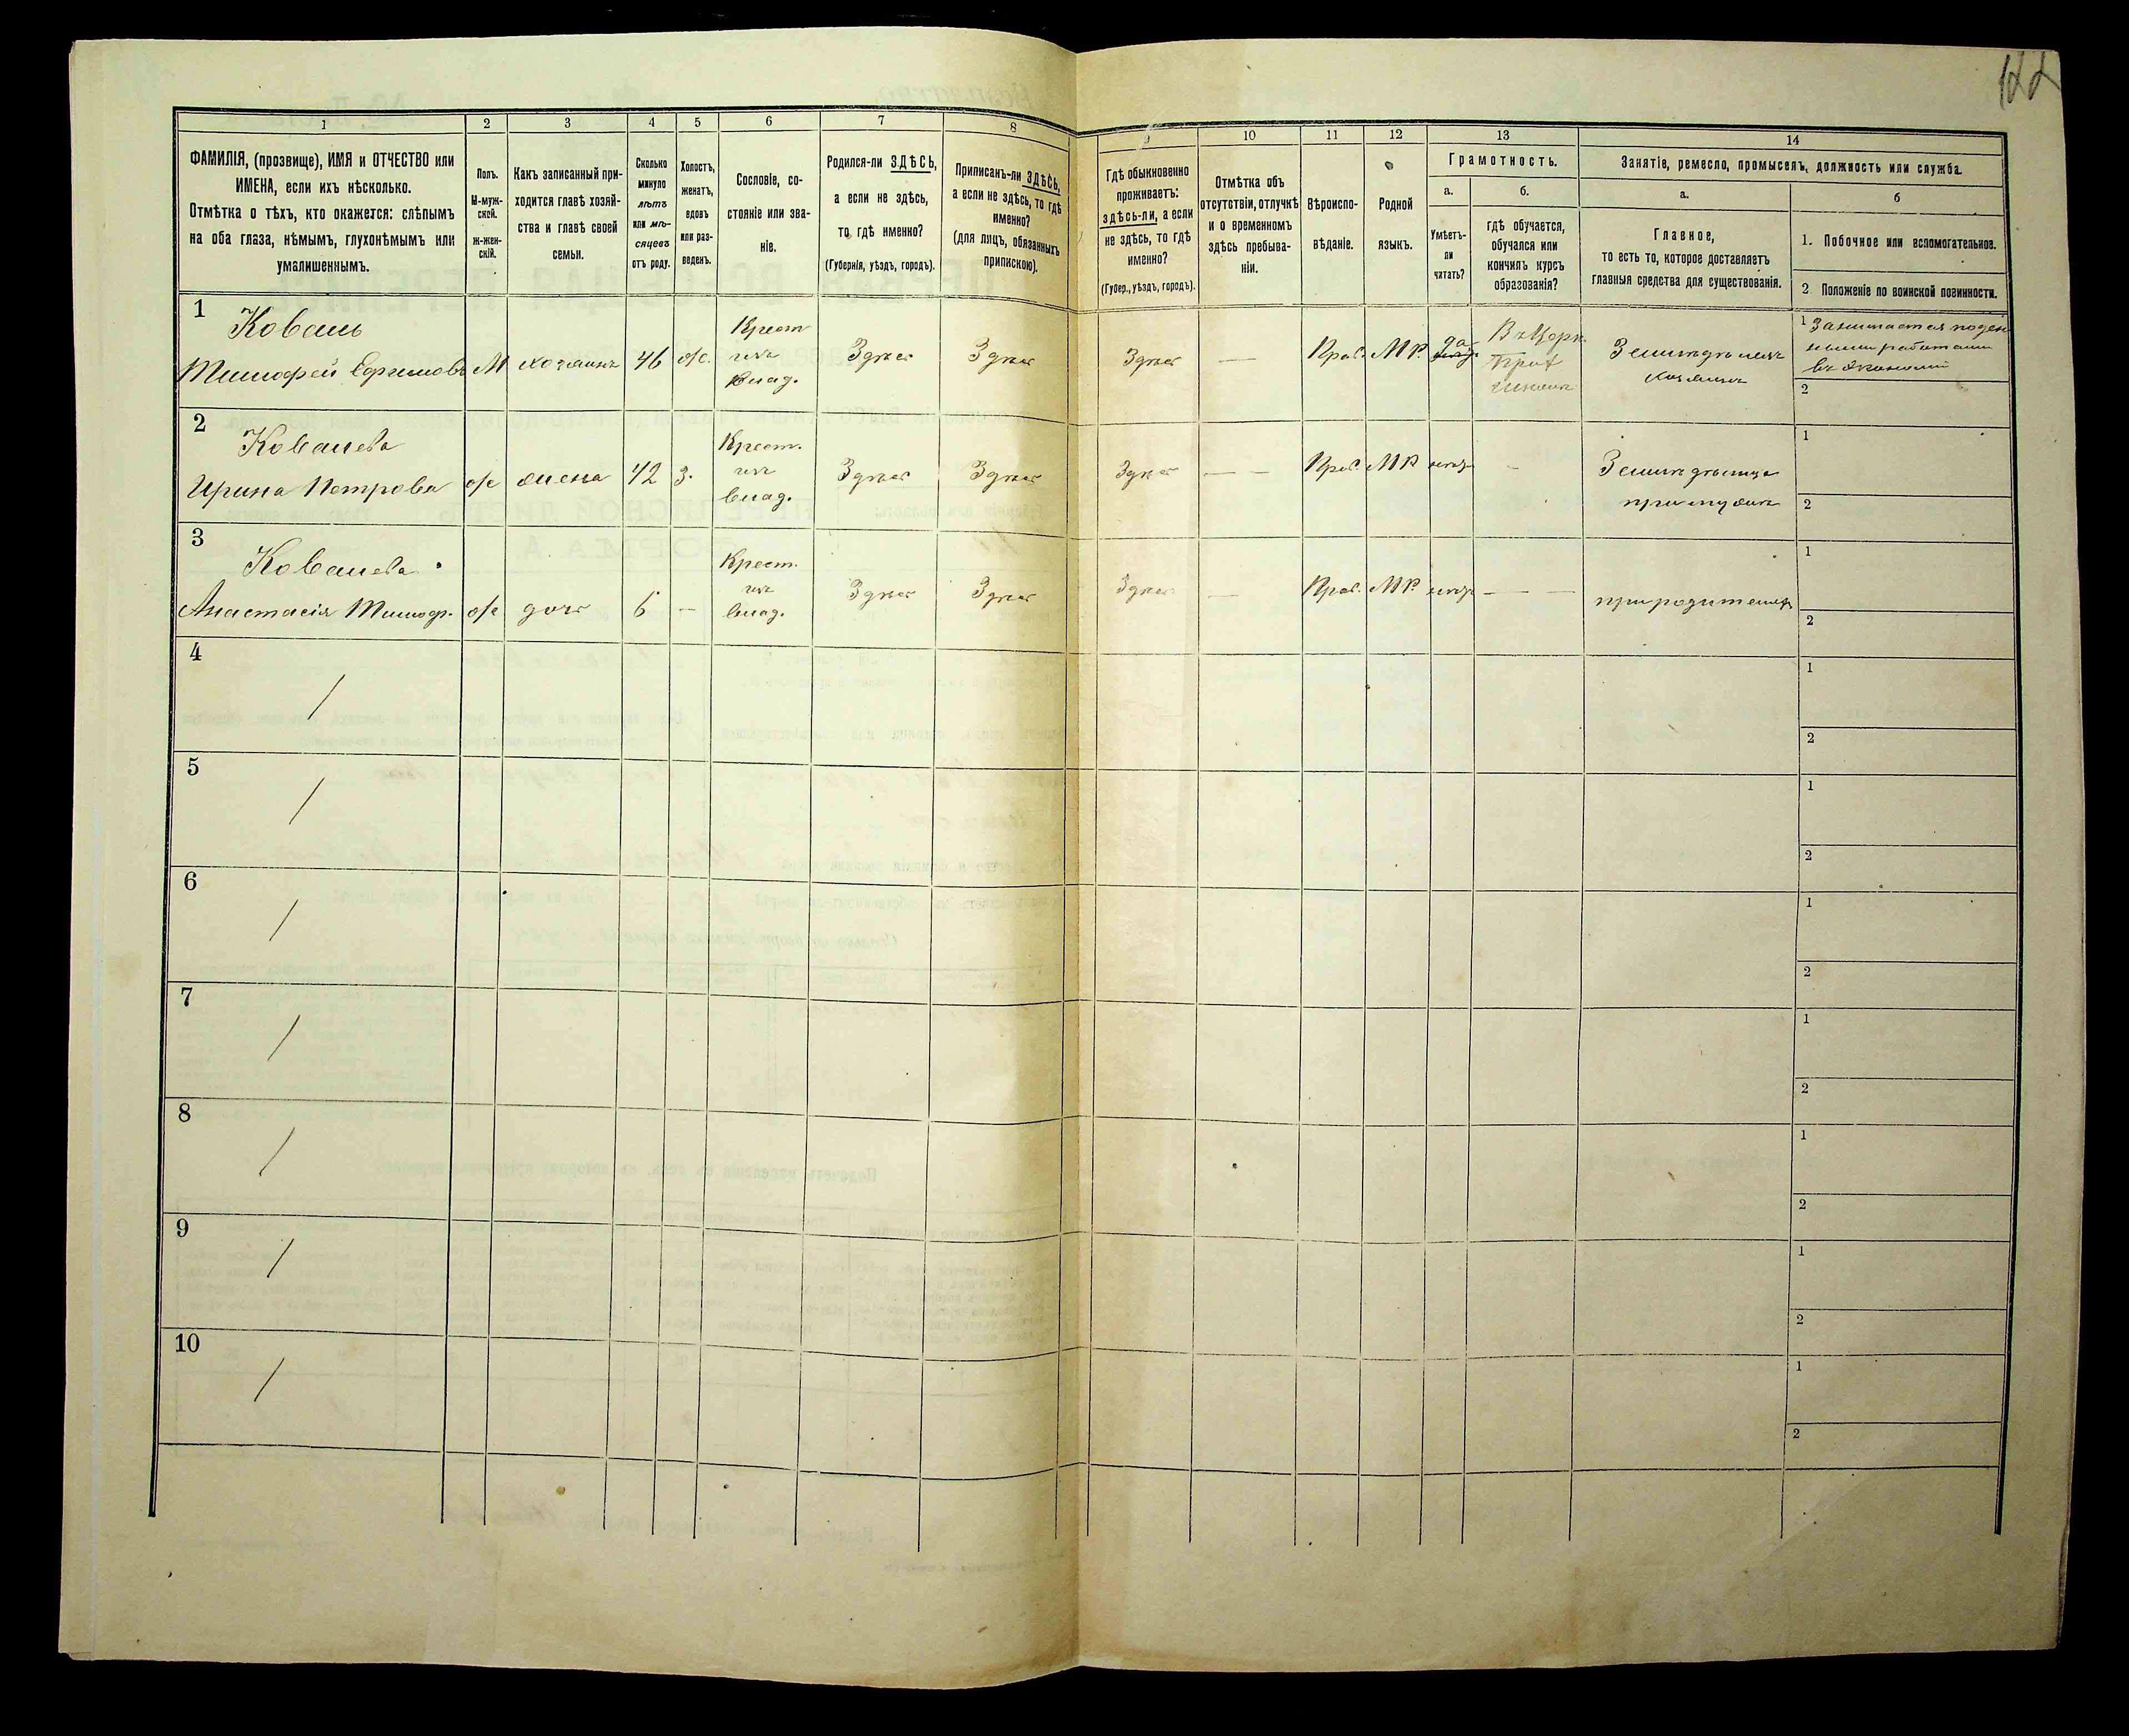 122
1
2
3
4
5
6
7
8
9
10
11
12
13
14
ФАМИЛІЯ, (прозвище), ИМЯ и ОТЧЕСТВО или
ИМЕНА, если ихъ нѣсколько.
Отмѣтка о тѣхъ, кто окажется: слѣпымъ
на оба глаза, нѣмымъ, глухонѣмымъ или
умалишеннымъ.
Полъ.
М-муж-
ской.
ж-жен-
скій.
Какъ записанный при-
ходится главѣ хозяй-
ства и главѣ своей
семьи.
Сколько
минуло
лѣтъ
или мѣ-
сяцевъ
отъ роду.
Холостъ,
женатъ,
вдовъ
или раз-
веденъ.
Сословіе, со-
стояніе или зва-
ніе.
Родился-ли ЗДѢСЬ,
а если не здѣсь,
то гдѣ именно?
(Губернія, уѣздъ, городъ).
Приписанъ-ли ЗДѢСЬ,
а если не здѣсь, то гдѣ
именно?
(для лицъ, обязанныхъ
припискою).
Гдѣ обыкновенно
проживаетъ:
здѣсь-ли, а если
не здѣсь, то гдѣ
именно?
(Губер., уѣздъ, городъ).
Отмѣтка объ
отсутствіи, отлучкѣ
и о временномъ
здѣсь пребыва-
ніи.
Вѣроиспо-
вѣданіе.
Родной
языкъ.
Грамотность.
а.
Умѣетъ-
ли
читать?
б.
гдѣ обучается,
обучался или
кончилъ курсъ
образованія?
Занятіе, ремесло, промыселъ, должность или служба.
а.
Главное,
то есть то, которое доставляетъ
главныя средства для существованія.
б
1. Побочное или вспомогательное.
2 Положеніе по воинской повинности.
1
Коваль
Тимофей Ефимовъ
М
хозяинъ
46
ж.
Крест
изъ
влад.
Здѣсь
Здѣсь
Здѣсь
—
Прав.
МР.
да
Въ Церк.
Приход
школѣ
Земледѣлецъ
хозяинъ
1 Занимается поден
ными работами
въ экономіи
2
2
Ковалева
Ирина Петрова
ж
жена
42
з.
Крест.
изъ
влад.
Здѣсь
Здѣсь
Здѣсь
— —
Прав.
МР
нѣтъ
-
Земледѣлица
при мужѣ
1
2
3
Ковалева
Анастасія Тимоф.
ж
дочь
6
—
Крест.
изъ
влад.
Здѣсь
Здѣсь
Здѣсь
—
Прав.
МР.
нѣтъ
— — —
при родителяхъ
1
2
4
/
1
2
5
/
1
2
6
/
1
2
7
/
1
2
8
/
1
2
9
/
1
2
10
/
1
2